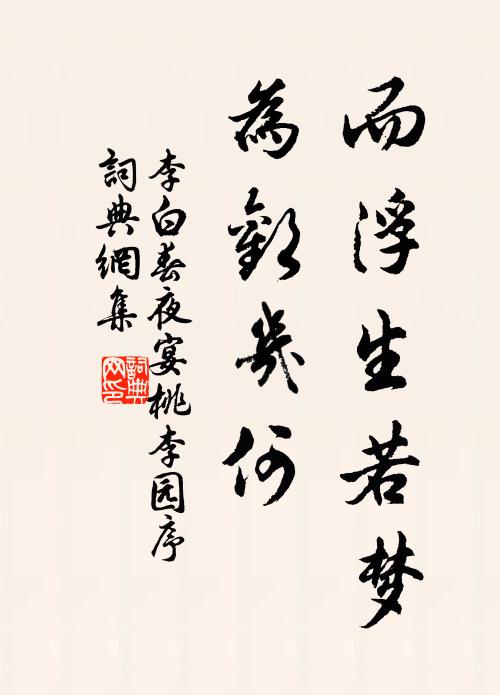 而浮生若梦
為歡幾何
李白春夜宴桃李园序
詞典網集
詞典网印